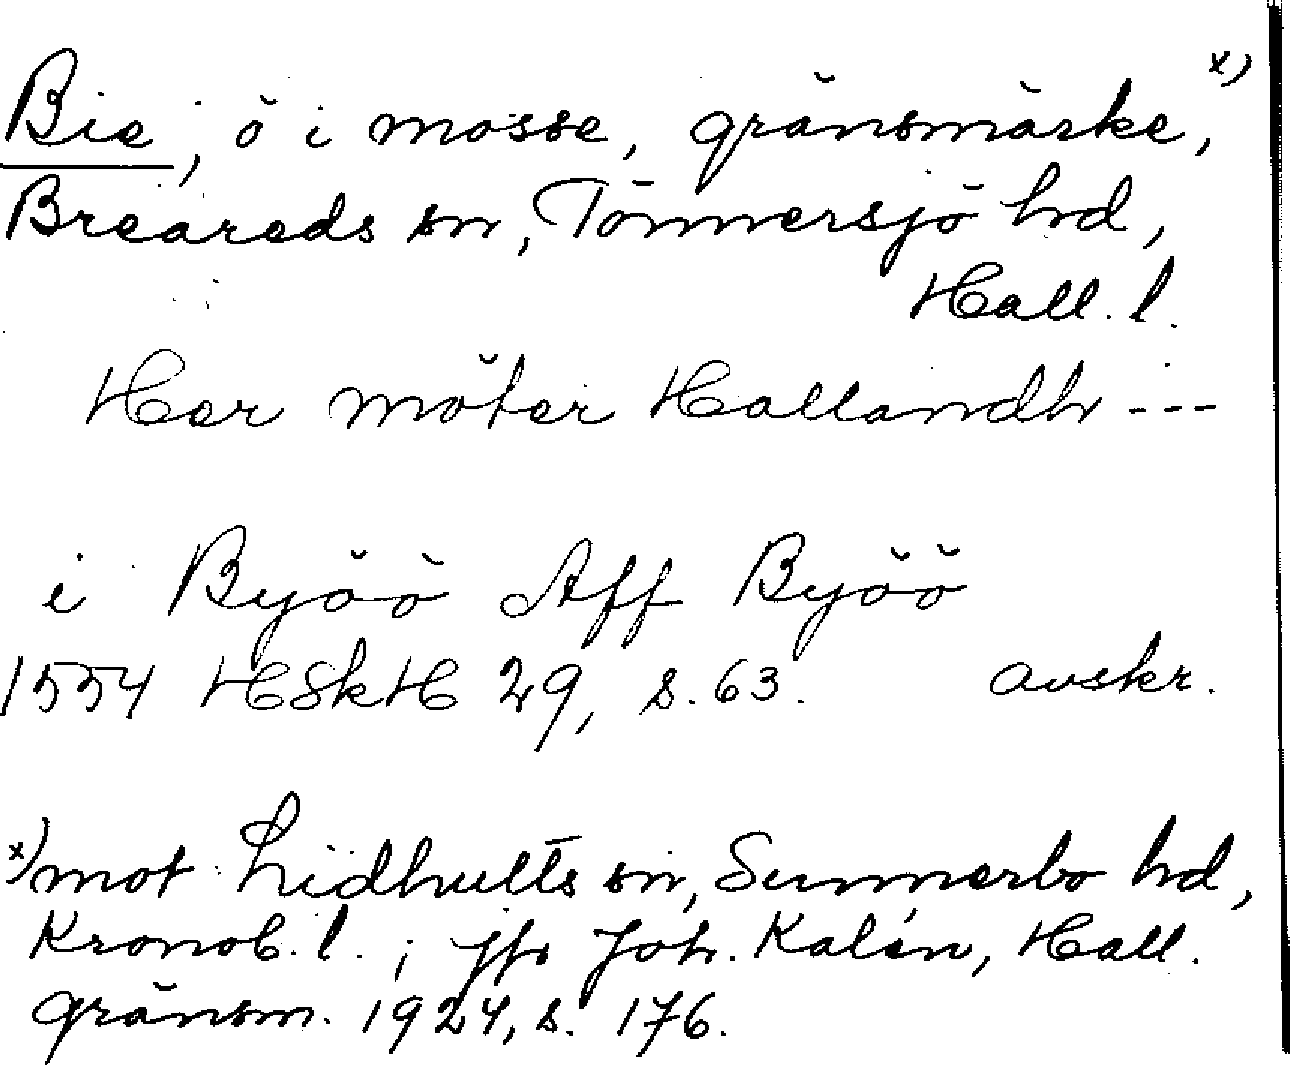 Bie, ö i mosse, gränsmärke, x)
Breareds sn, Tönnersjö hd,
Hall. l.
Her möter Hallandh ---
i Byöö Aff Byöö
1554 HSkH 29, s. 63. avskr.
x) mot Lidhults sn, Sunnerbo hd,
Kronob. l.; jfr Joh. Kalén, Hall.
gränsm. 1924, s. 176.